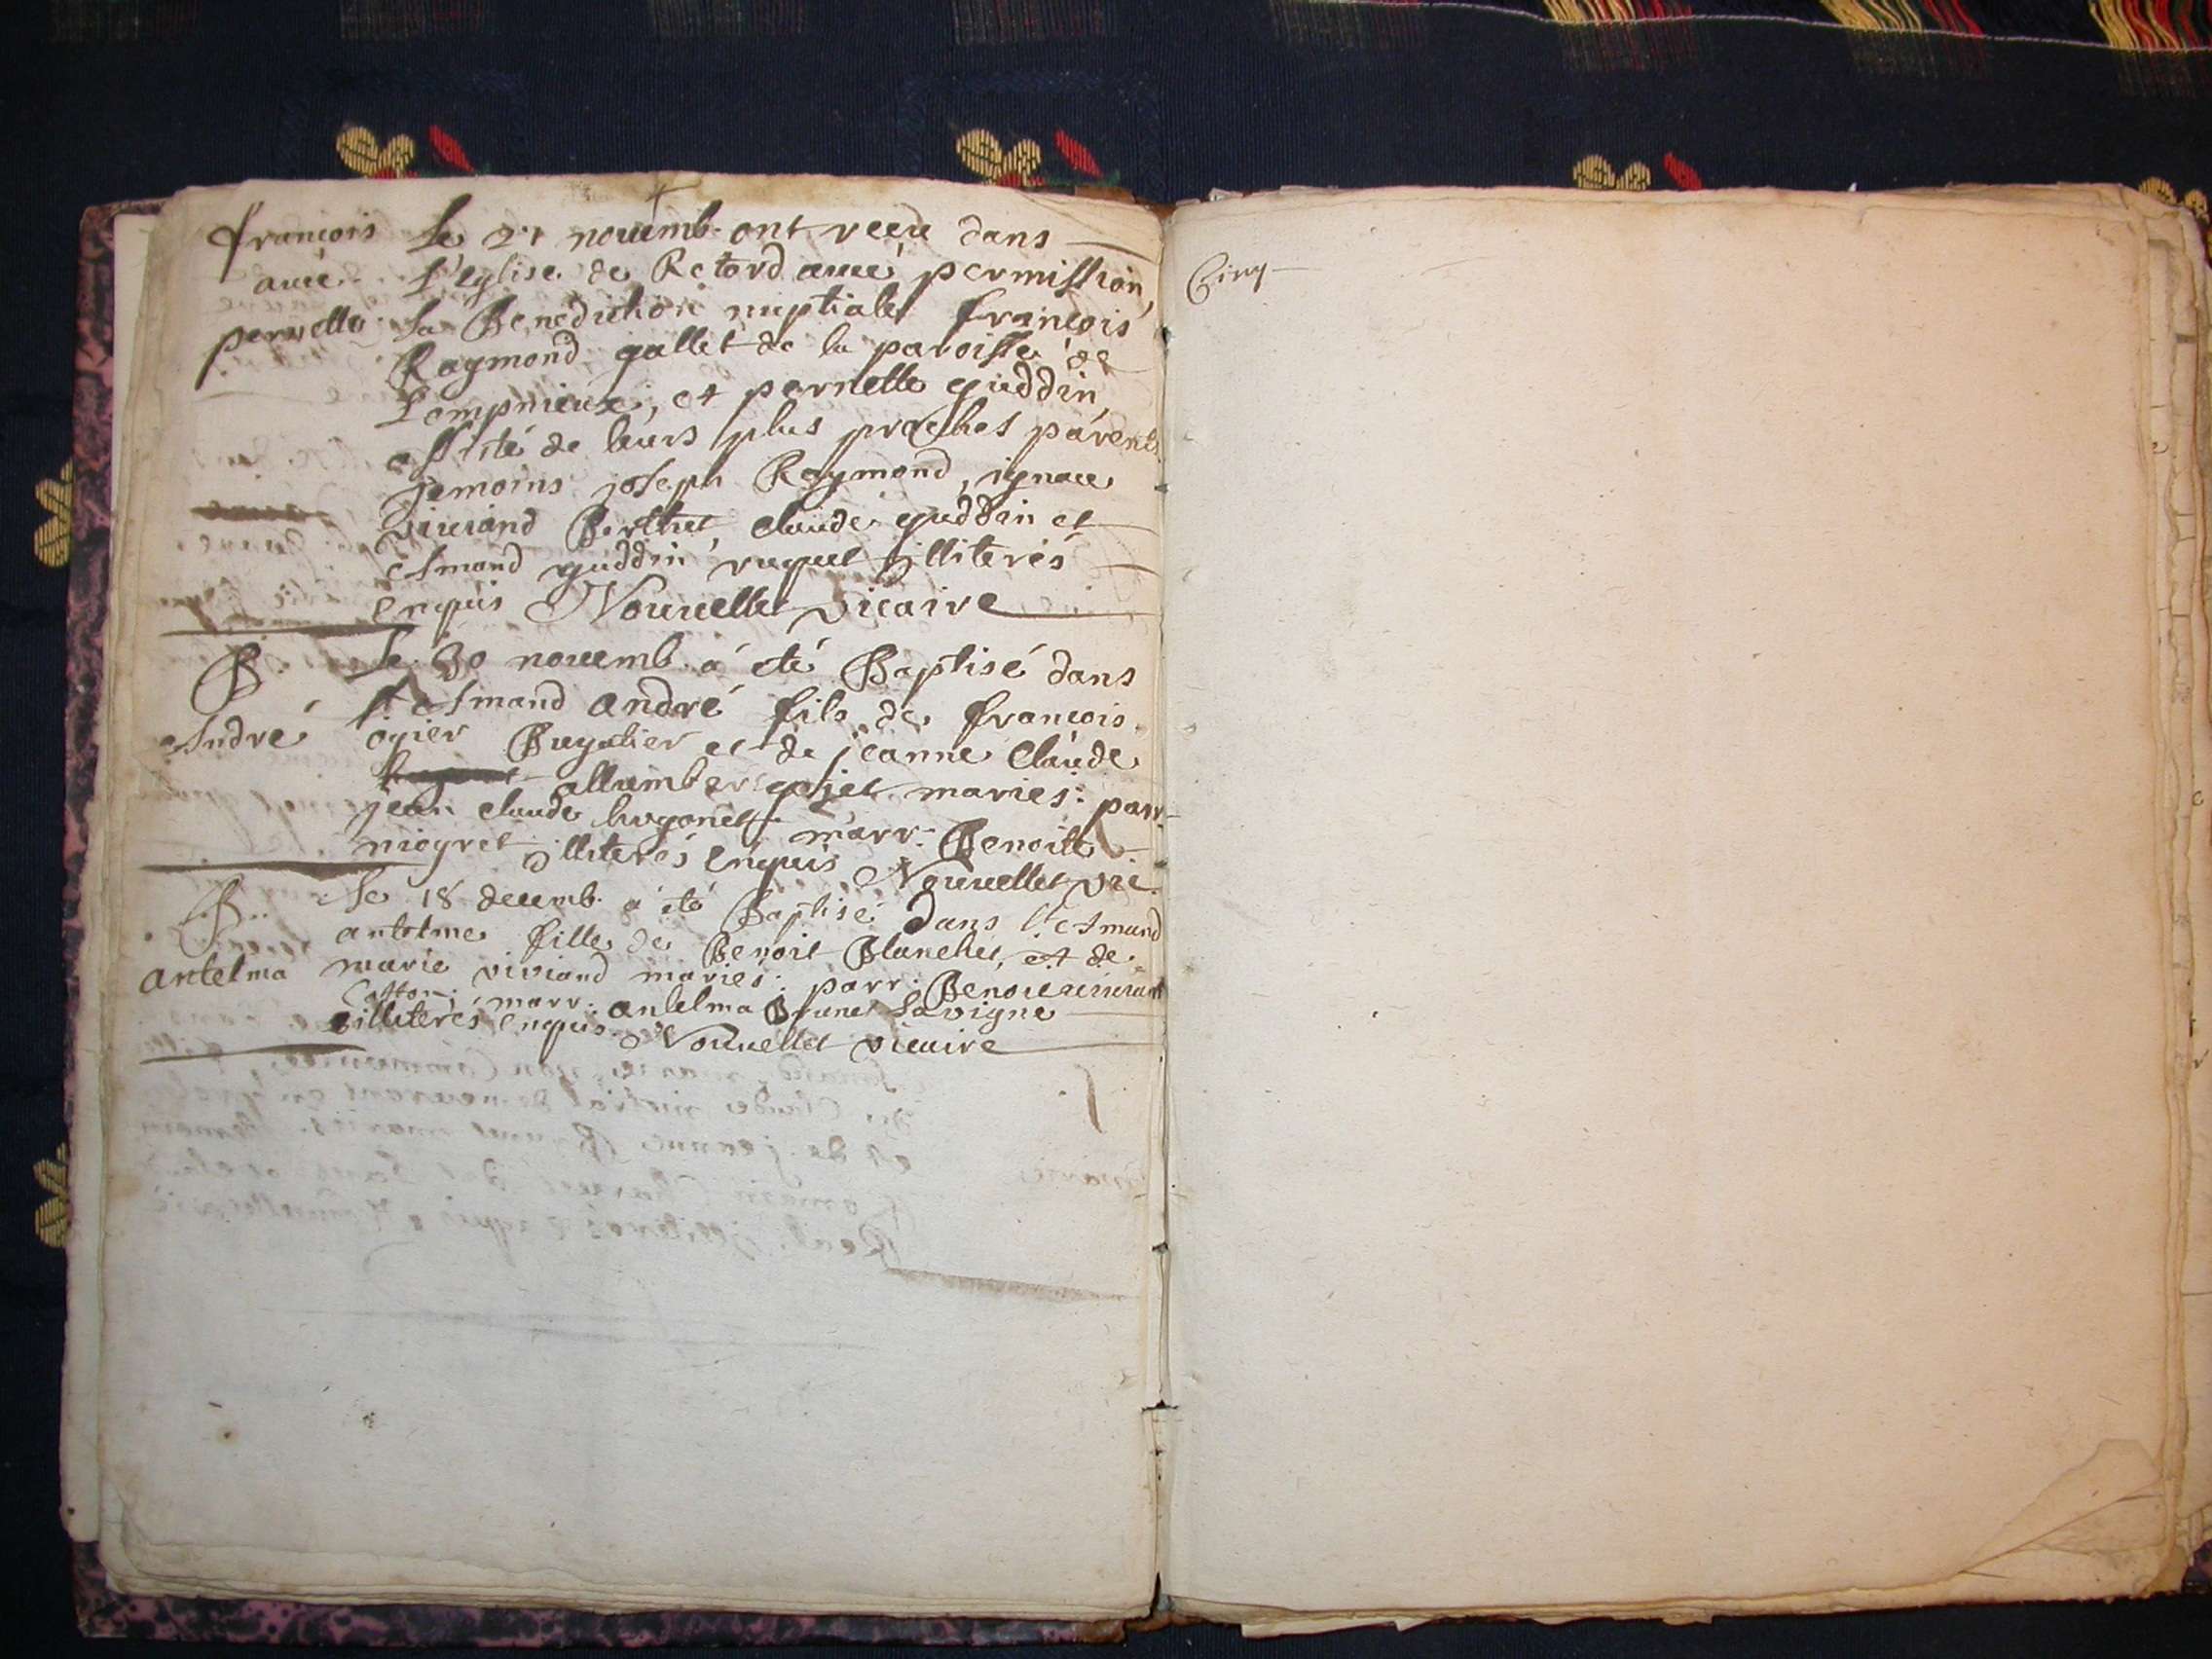 françois Le 21 novemb. ont reçu dans
avec L'eglise de Retord avec permission,
pernette la Benediction nuptiale françois
Raymond gallet de la paroisse de
Lompnieux, et pernette guddin,
assisté de leurs plus proches parents
temoins joseph Raymond, ignace
viviand Berthet, claude guddin et
Amand guddin illiterés
enquis Nouvellet vicaire
B. Le 30 novemb. á eté Baptisé dans
André St Amand André fils de françois
ogier Bugalier et de jeanne Claude
allumber mariés: parr.
jean claude hugonet marr: Benoitte
niogret illiterés enquis Nouvellet vic.
B. Le 18 decemb. á eté Baptisé dans St Amand
antelme fille de Benoit Blanchet, et de
antelma marie viviand mariés: parr: Benoit
Catton: marr: antelma Brunet Lavigne
illiterés enquis Nouvellet vicaire
Cinq